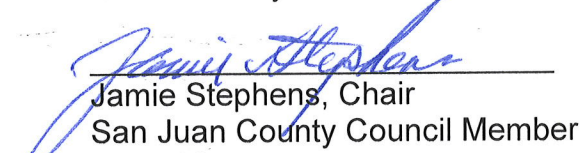 Jamie Stephens
Jamie Stephens, Chair
San Juan County Council Member